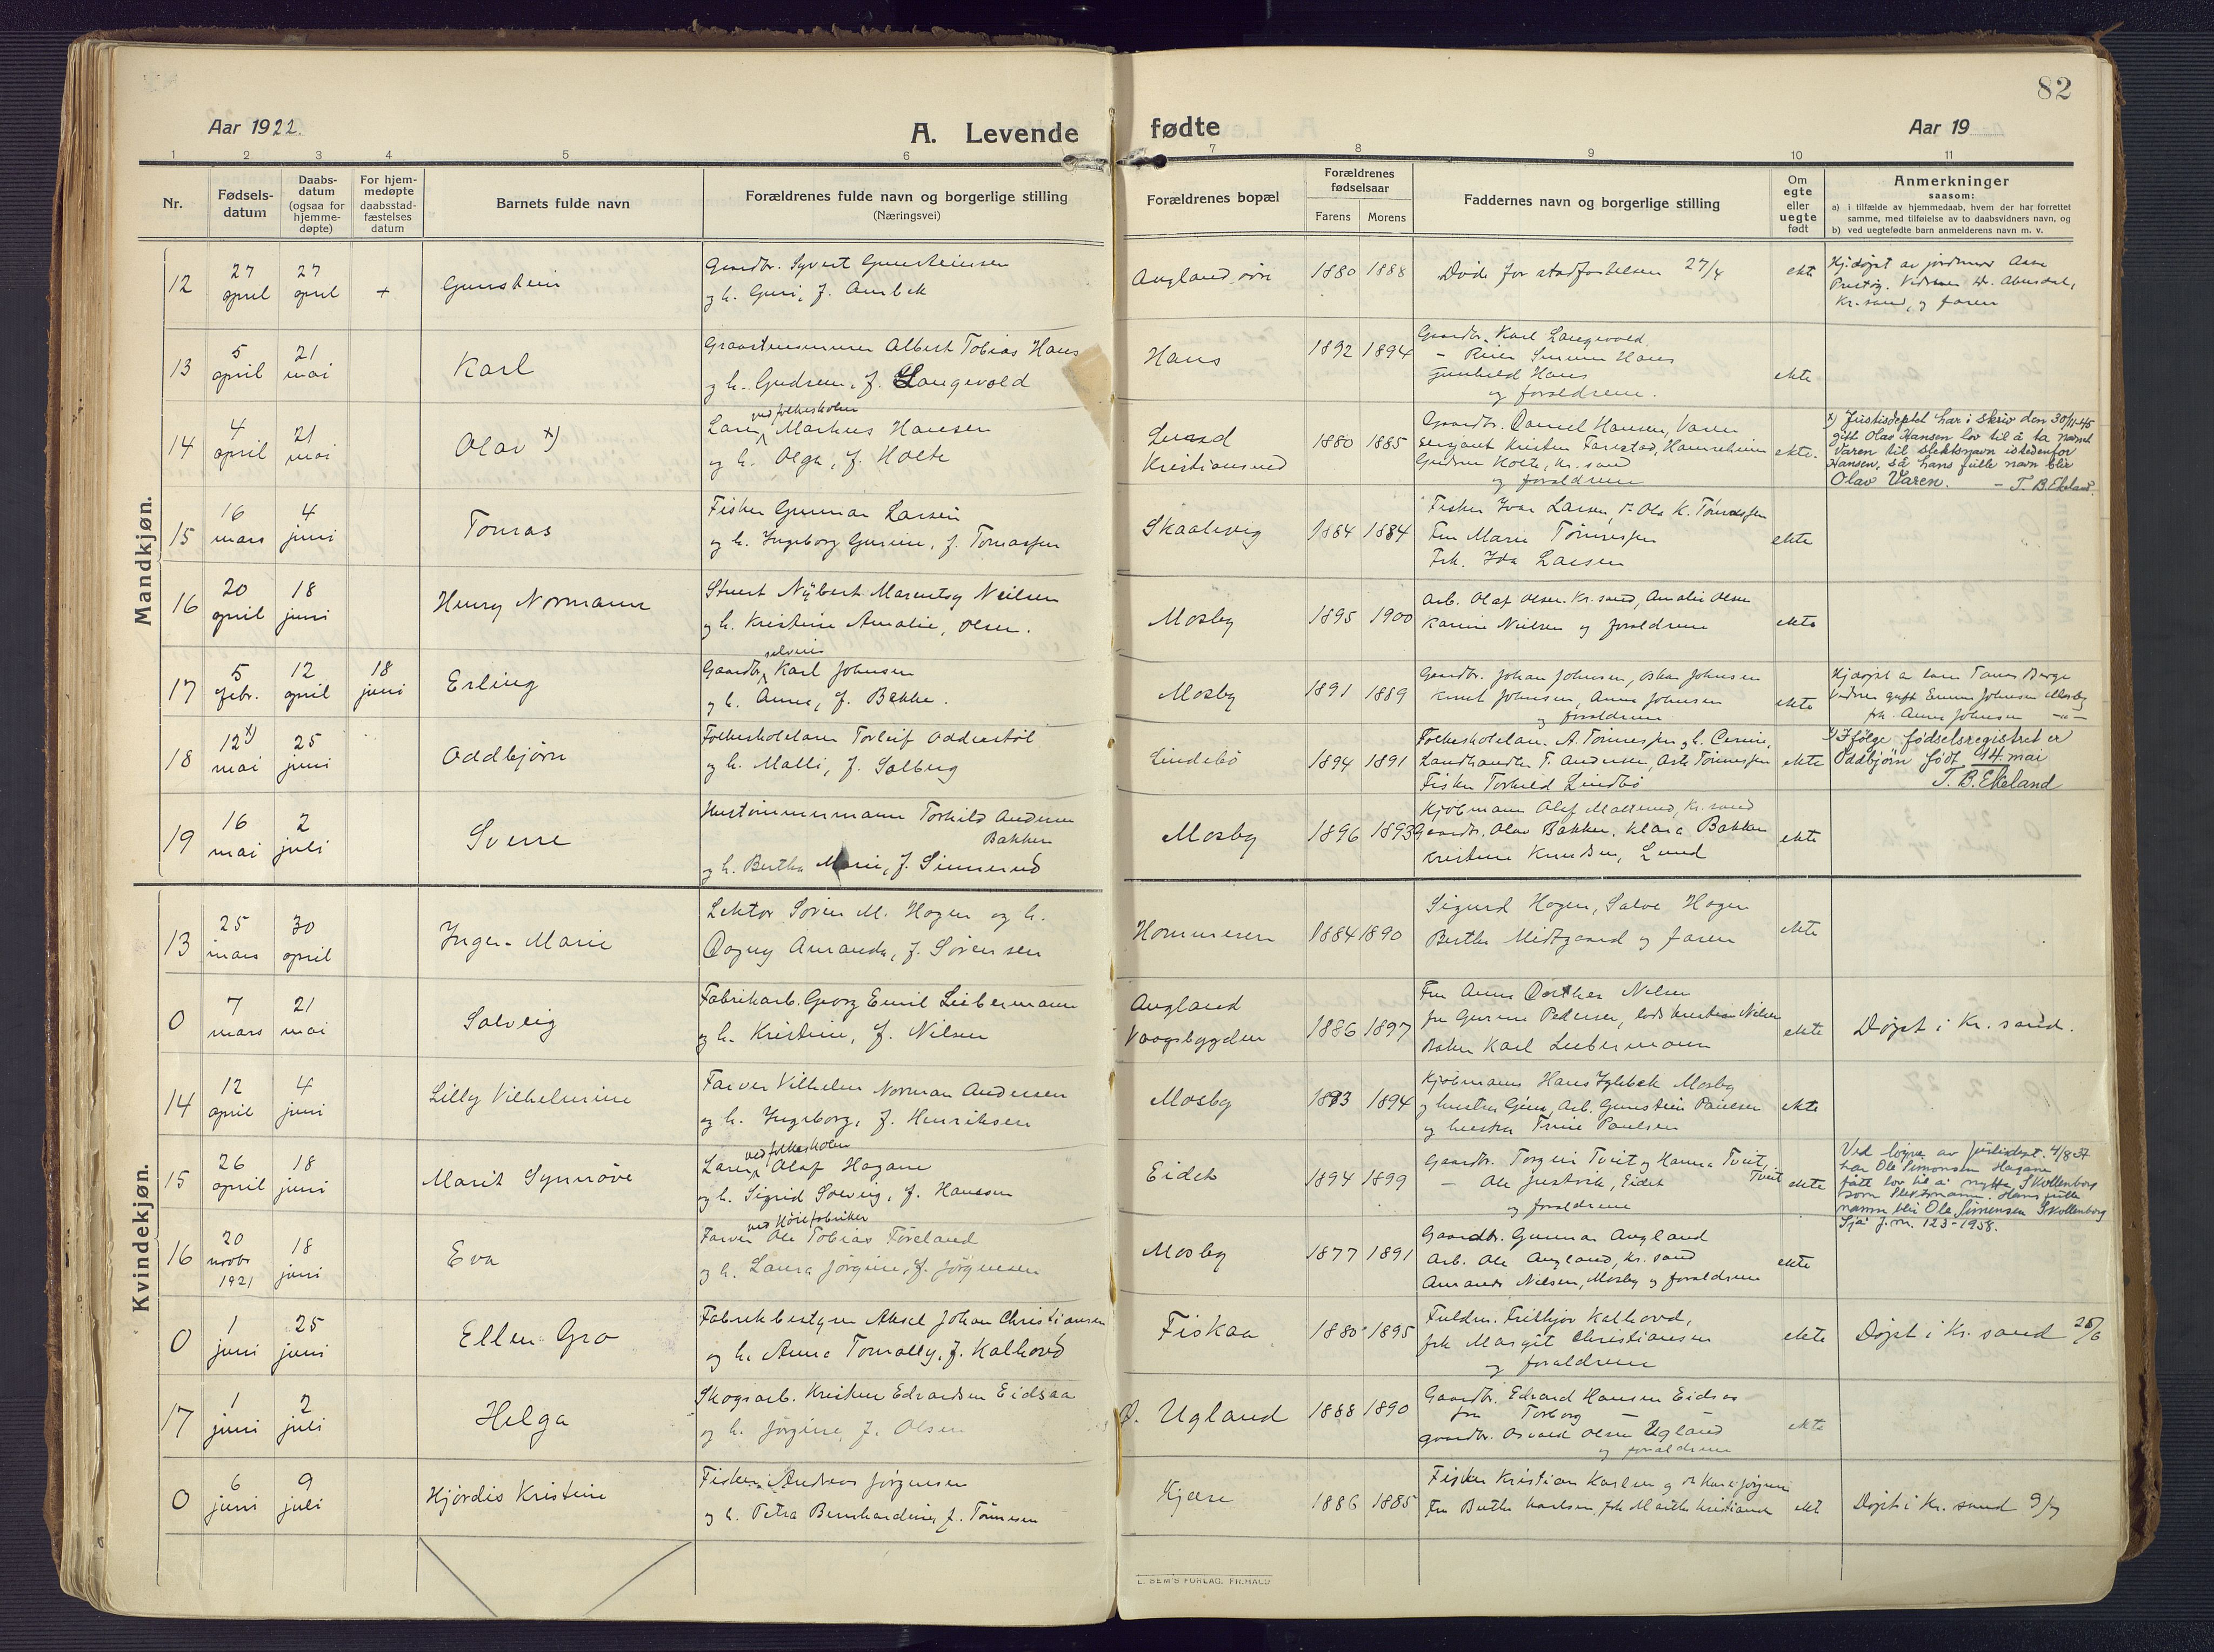 82
Aar 1922.
A. Levende fødte
Aar 19
1 2 3 4 5 6 7 8 9 10 11
Nr.
Fødsels-
datum
Daabs-
datum
(ogsaa for
hjemme-
døpte)
For hjem-
medøpte
daabsstad-
fæstelses
datum
Barnets fulde navn
Forældrenes fulde navn og borgerlige stilling
(Næringsvei)
Forældrenes bopæl
Forældrenes
fødselsaar
Farens Morens
Faddernes navn og borgerlige stilling
Om
egte
eller
uegte
født
Anmerkninger
saasom:
a) i tilfælde av hjemmedaab, hvem der har forrettet
samme, med tilføielse av to daabsvidners navn, og
b) ved uegtefødte barn anmelderens navn m. v.
Mandkjøn.
12 27 april 27 april + Gunstein
Gaardbr. Syvert Gunsteinsen
og h. Guri, f. Aurbek
Augland, øvre 1880 1888
Døde før stadfestelsen 27/4
ekte
Hj.døpt av jordmor Aase
Kr.sand, og faren
13 5 april 21 mai Karl
Albert Tobias Haus
og h. Gudrun, f. Langevold
Haus 1892 1894
Gaardbr. Karl Langevold
Gunhild Haus
og forældrene.
ekte
14 4 april 21 mai Olav x)
ved folkeskolen
Lærer Markus Hansen
og h. Olga, f. Holte
Lund
Kristiansand
1880 1885
Gaardbr. Daniel Hansen, Varen
Gudrun Holte, Kr. sand
og forældrene
ekte.
x) Justisdeptet har i skriv den 30/11-45
gitt Olav Hansen lov til å ta namnet
Varen til slektsnavn istedenfor
Hansen, så hans fulle navn blir
Olav Varen. - T. B. Ekeland.
15 16 mars 4 juni Tomas
Fisker Gunnar Larsen
og h. Ingeborg Gurine, f. Tomassen
Skaalevig 1884 1884
Fisker Ivar Larsen, Ola K. Tønnessen
Fru Marie Tønnessen
Frk. Ida Larsen
ekte
16 20 april 18 juni Henry Normann
Nielsen
og h. Kristine Amalie, Olsen.
Mosby 1895 1900
Arb. Olaf Olsen. Kr. sand, Amalie Olsen
Karine Nielsen og forældrene
ekte
17 5 febr. 12 april 18 juni Erling
selveier
Gaardbr. Karl Johnsen
og h. Anna, f. Bakke.
Mosby 1891 1889
Gaardbr. Johan Johnsen, Oskar Johnsen
Knut Johnsen, Anna Johnsen
og forældrene
ekte
Hjdøpt av
Emma Johnsen Mosby
frk. Anna Johnsen -"-
18 12 x) mai 25 juni Oddbjørn
Folkeskolelærer Torleif Oddestøl
og h. Malli, f. Solberg
Lindebø 1894 1891
Folkeskolelær. A. Tønnessen og h.
Landhandler T. Andersen, Asta Tønnessen
Fisker Torkild Lindbø
ekte
x) Ifølge fødselsregistret er
Oddbjørn født 14. mai
T. B. Ekeland
19 16 mai 2 juli Sverre
Hustømmermann Torkild Andersen
Bakken
og h. Bertha Marie, f. Simerud
Mosby 1896 1893
Kjøbmann Olaf
Gaardbr. Olav Bakken, Klara Bakken
Kristine Knudsen, Lund
ekte
Kvindekjøn.
13 25 mars 30 april Inger-Marie
Lektor Søren M. Hagen og h.
Dagny Amanda, f. Sørensen
Hommeren 1884 1890
Sigurd Hagen, Salve Hagen
Berthe Midtgaard og faren
ekte
0 7 mars 21 mai Solveig
Fabrikarb. Georg Emil Liebermann
og h. Kristine, f. Nilsen
Augland
Vaagsbygden
1886 1897
Fru Anna Dorthea Nilsen
fru Gurine Pedersen, Nilsen
Karl Liebermann
ekte
Døpt i Kr. sand.
14 12 april 4 juni Lilly Vilhelmine
Farver Vilhelm Norman Andersen
og h. Ingeborg, f. Henriksen
Mosby 1893 1894
Kjøbmann Hans Iglebæk Mosby
og hustru Gina, Arb. Gunstein Paulsen
og hustru Trine Paulsen
ekte
15 26 april 18 juni Marit Synnøve
ved folkeskolen
Lærer Olaf Hagane
og h. Sigrid Solveig, f. Hansen
Eidet 1894 1899
Gaardbr. Torgeir Tveit og Hanna Tveit, Tveit
- Ole Justvik, Eidet
og forældrene
ekte
Ved løyve av justisdept. 4/8 37
har Ole Simonsen Hagane
fått lov til å nytte Skollenborg
som slektsnamn. Hans fulle
namn blir Ole Simonsen Skollenborg
Sjå j.nr. 123-1938.
16 20 novbr 1921 18 juni Eva
ved Høiefabriker
Farver Ole Tobias Føreland
og h. Laura Jørgine, f. Jørgensen
Mosby 1877 1891
Gaardbr. Gunnar Augland
Arb. Ole Augland, Kr. sand
Amanda Nielsen, Mosby og forældrene
ekte
0 1 juni 25 juni Ellen Gro
Fabrikbestyrer Aksel Johan Christiansen
og h. Anna Tomally, f. Kalhovd
Fiskaa 1880 1895
Fuldm. Fritthjov Kalhovd,
frk Margit Christiansen
og forældrene
ekte
Døpt i Kr. sand 25/6
17 1 juni 2 juli Helga
Skogsarb. Kristen Edvardsen Eidsaa
og h. Jørgine, f. Olsen
Ø. Ugland 1888 1890
Gaardbr. Edvard Hansen Eidsaa
fru Torborg -
gaardbr. Osvald Olsen Ugland
og forældrene
ekte
0 6 juni 9 juli Hjørdis Kristine
Fisker Andreas Jørgensen
og h. Petra Bernhardine, f. Tønnesen
Kjære 1886 1885
Fisker Kristian Karlsen og
Fru Berthe Karlsen, frk Marthe Kristiansen
ekt
Døpt i Kr. sand 9/7
E. SEM'S FORLAG. FR.HALD